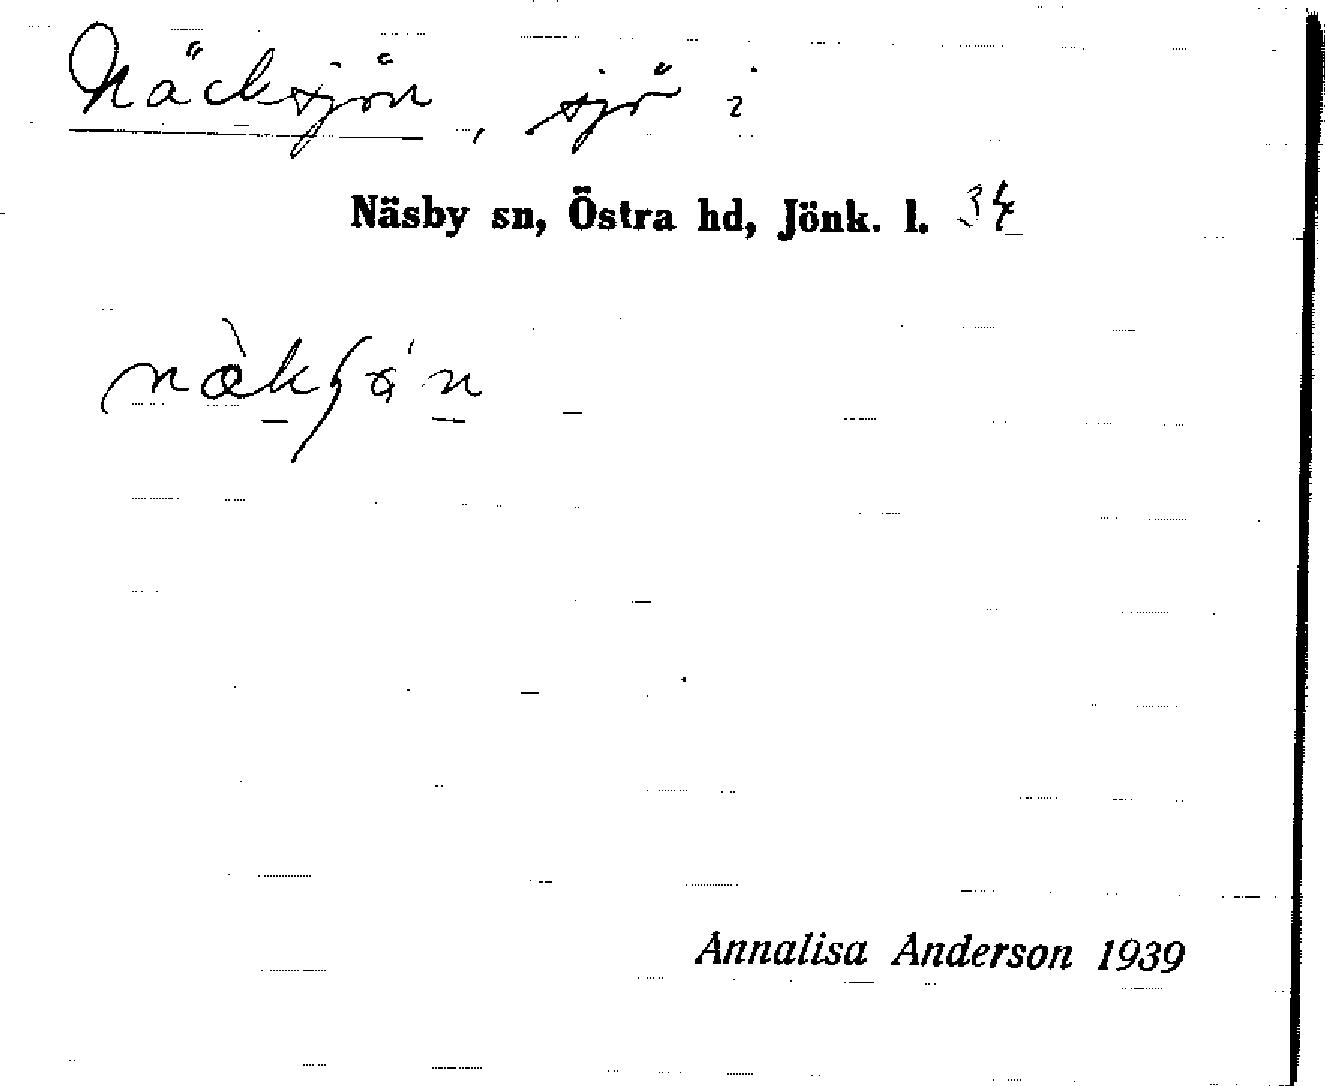 Näcksjön, sjö i
Näsby sn, Östra hd, Jönk. l. 34
Annalisa Anderson 1939